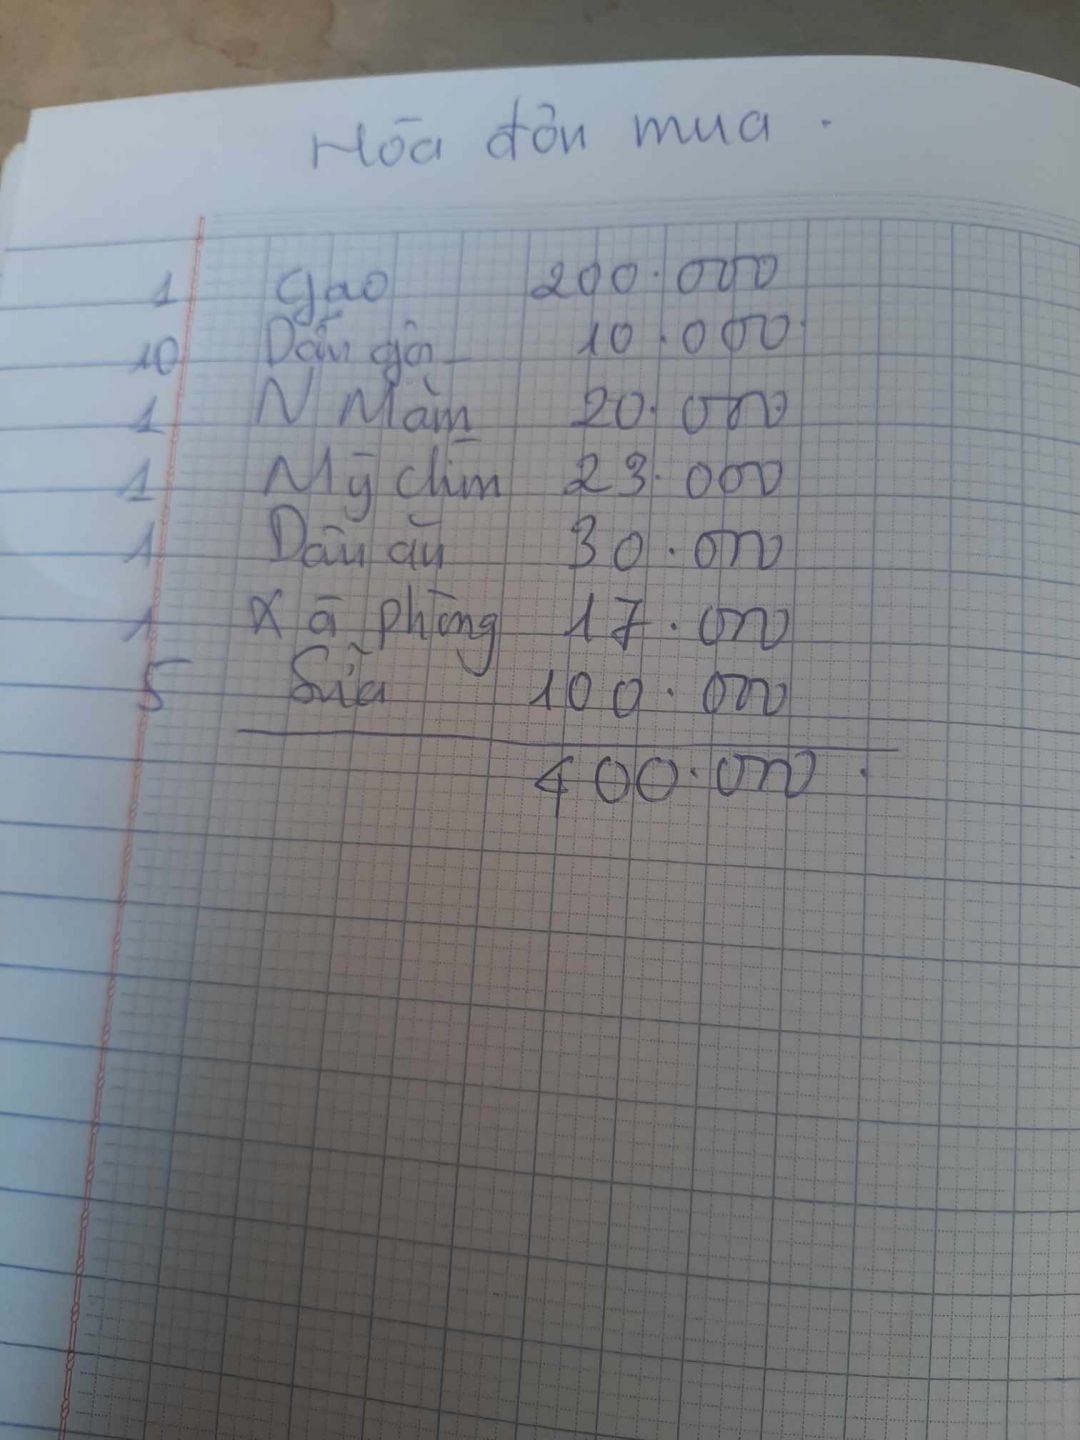 Hóa đơn mua.
1 Gạo 200.000
10 Dầu gội 10.000
1 N Mắm 20.000
1 Mỳ chím 23.000
1 Dầu ăn 30.000
1 Xà phòng 17.000
5 Sữa 100.000
400.000.